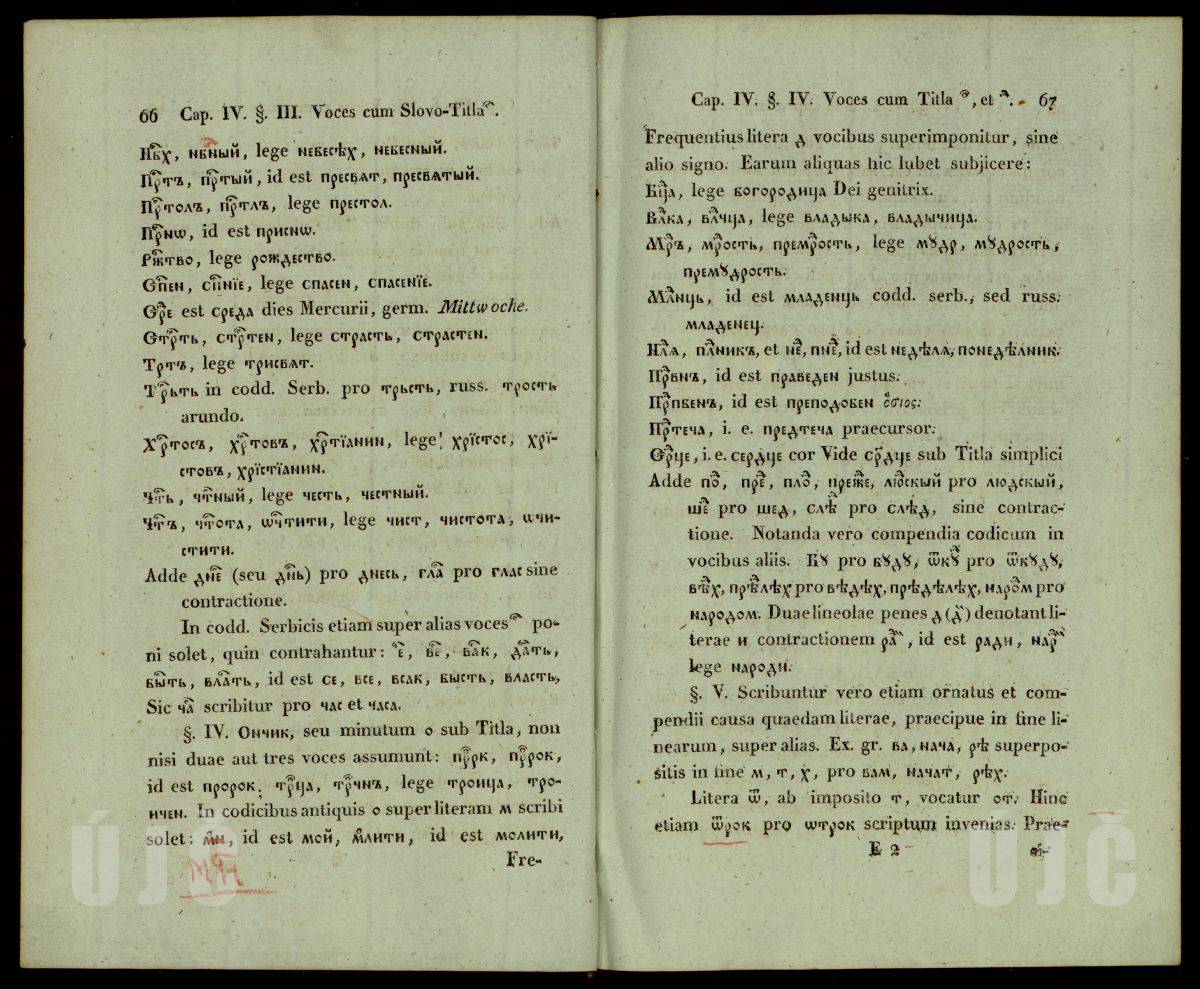 66 Cap. IV. §. III. Voces cum Slovo-Titla ⷭ҇.
Нбⷭ҇х, нбⷭ҇ный, lege небесѣх, небесный.
Прⷭ҇тъ, прⷭ҇тый, id est пресвѧт, пресвѧтый.
Прⷭ҇толъ, прⷭ҇тлъ, lege престол.
Прⷭ҇нѡ, id est приснѡ.
Ржⷭ҇тво, lege рождество.
Спⷭ҇ен, спⷭ҇нїе, lege спасен, спасенїе.
Срⷭ҇е est среда dies Mercurii, germ. Mittwoche.
Стрⷭ҇ть, стрⷭ҇тен, lege страсть, страстен.
Тртъ, lege трисвѧт.
Трⷭ҇ьть in codd. Serb. pro трьсть, russ. трость
arundo.
Хрⷭ҇тосъ, хрⷭ҇товъ, хрⷭ҇тїанин, lege хрїстос, хрї-
стовъ, хрїстїанин.
Чⷭ҇ть, чⷭ҇тный, lege честь, честный.
Чⷭ҇тъ, чⷭ҇тота, ѡчⷭ҇тити, lege чист, чистота, ѡчи-
стити.
Adde днеⷭ҇ (seu днⷭ҇ь) pro днесь, глаⷭ҇ pro глас sine
contractione.
In codd. Serbicis etiam super alias voces ⷭ҇ po-
ni solet, quin contrahantur: еⷭ҇, веⷭ҇, ваⷭ҇к, даⷭ҇ть,
быⷭ҇ть, влаⷭ҇ть, id est се, все, всак, бысть, власть,
Sic чаⷭ҇ scribitur pro час et часа.
§. IV. Ончик, seu minutum о sub Titla, non
nisi duae aut tres voces assumunt: прⷪ҇рк, прⷪ҇рок,
id est пророк. трⷪ҇ца, трⷪ҇чнъ, lege троица, тро-
ичен. In codicibus antiquis о super literam м scribi
solet: мⷪ҇и, id est мой, мⷪ҇лити, id est молити,
Fre-
Cap. IV. §. IV. Voces cum Titla ⷪ҇, et ⷣ. 67
Frequentius litera д vocibus superimponitur, sine
alio signo. Earum aliquas hic lubet subjicere:
Бцⷣа, lege богородица Dei genitrix.
Влⷣка, влⷣчца, lege владыка, владычица.
Мрⷣъ, мрⷣость, премрⷣость, lege мꙋдр, мꙋдрость,
премꙋдрость.
Млⷣнць, id est младенць codd. serb., sed russ.
младенец.
Нлⷣѧ, плⷣникъ, et неⷣ, пнеⷣ, id est недѣлѧ, понедѣлник.
Прⷣвнъ, id est праведен justus.
Прⷣпбенъ, id est преподобен ὅσιος.
Прⷣтеча, i. e. предтеча praecursor.
Срⷣце, i. e. сердце cor Vide ср҃дце sub Titla simplici
Adde поⷣ, преⷣ, плоⷣ, преⷣже, люⷣский pro людский,
шеⷣ pro шед, слѣⷣ pro слѣд, sine contrac-
tione. Notanda vero compendia codicum in
vocibus aliis. Бꙋ pro бꙋдꙋ, ѿкꙋⷣ pro ѿкꙋдꙋ,
вѣⷣх, прѣⷣлѣх pro вѣдѣх, прѣдѣлѣх, нароⷣм pro
народом. Duae lineolae penes д (д̏) denotant li-
terae и contractionem раⷣ̏, id est ради, нарⷣ̏
lege народи.
§. V. Scribuntur vero etiam ornatus et com-
pendii causa quaedam literae, praecipue in fine li-
nearum, super alias. Ex. gr. ва, нача, рѣ superpo-
sitis in fine м, т, х, pro вам, начат, рѣх.
Litera ѿ, ab imposito т, vocatur от. Hinc
etiam ѿрок pro ѡтрок scriptum invenias. Prae-
E 2
ÚJČ
ÚJČ